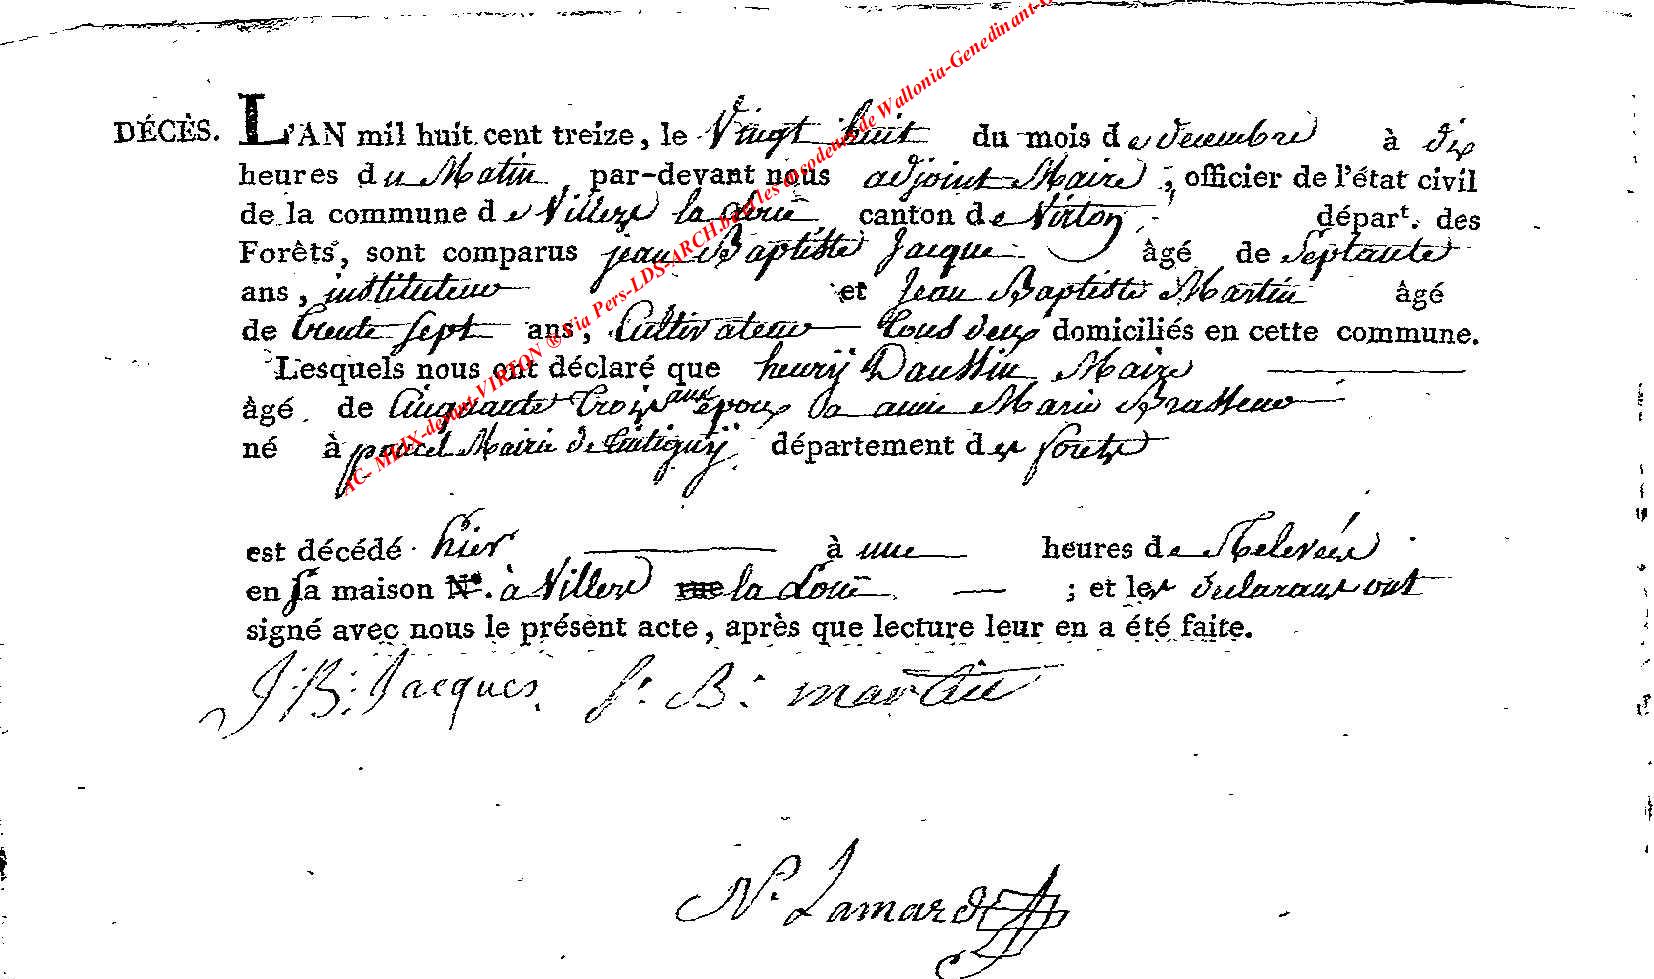 DÉCÈS. L'AN mil huit cent treize, le Vingt huit du mois de decembre à dix
heures du Matin, par-devant nous adjoint Maire, officier de l'état civil
de la commune de Villers la Loue canton de Virton, départ. des
Forêts, sont comparus jean Baptiste Jacque âgé de Septante
ans, instituteur et Jean Baptiste Martin âgé
de trente sept ans, Cultivateur tous deux domiciliés en cette commune.
Lesquels nous ont déclaré que henry Maire
âgé de Cinquante trois ans époux a anne Marie Brasseur
né à Mairie de département des forets
est décédé hier à une heures de Relevée
en sa maison N°. à Villers rue la Loue ; et les declarans ont
signé avec nous le présent acte, après que lecture leur en a été faite.
J: B: Jacques. J: B: martin
N. Lamard
AC- MEIX-devant-VIRTON ® Via Pers-LDS-ARCH.be et les encodeurs de Wallonia-Genedinant-